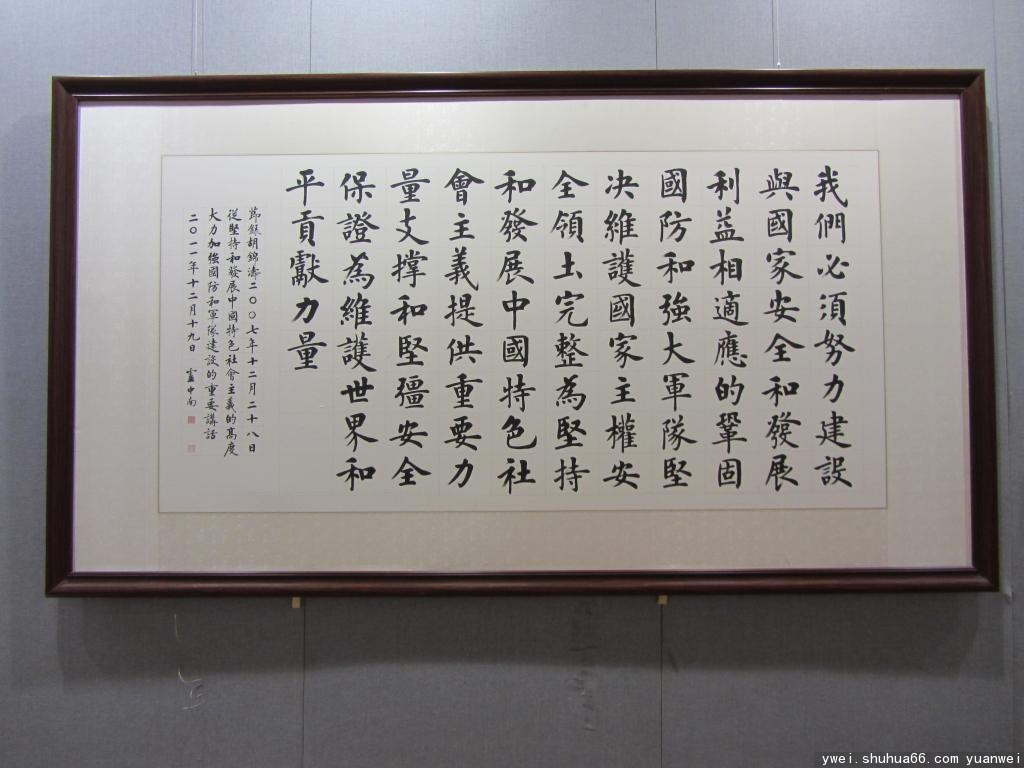 我們必須努力建設
與國家安全和發展
利益相適應的鞏固
國防和強大軍隊堅
决維護國家主權安
全領土完整為堅持
和發展中國特色社
會主義提供重要力
量支撑和堅彊安全
保證為維護世界和
平貢獻力量
節錄胡錦濤二〇〇七年十二月二十八日
從堅持和發展中國特色社會主義的髙度
大力加強國防和軍隊建設的重要講話
二〇一一年十二月十九日 盧中南
ywei.shuhua66.com yuanwei